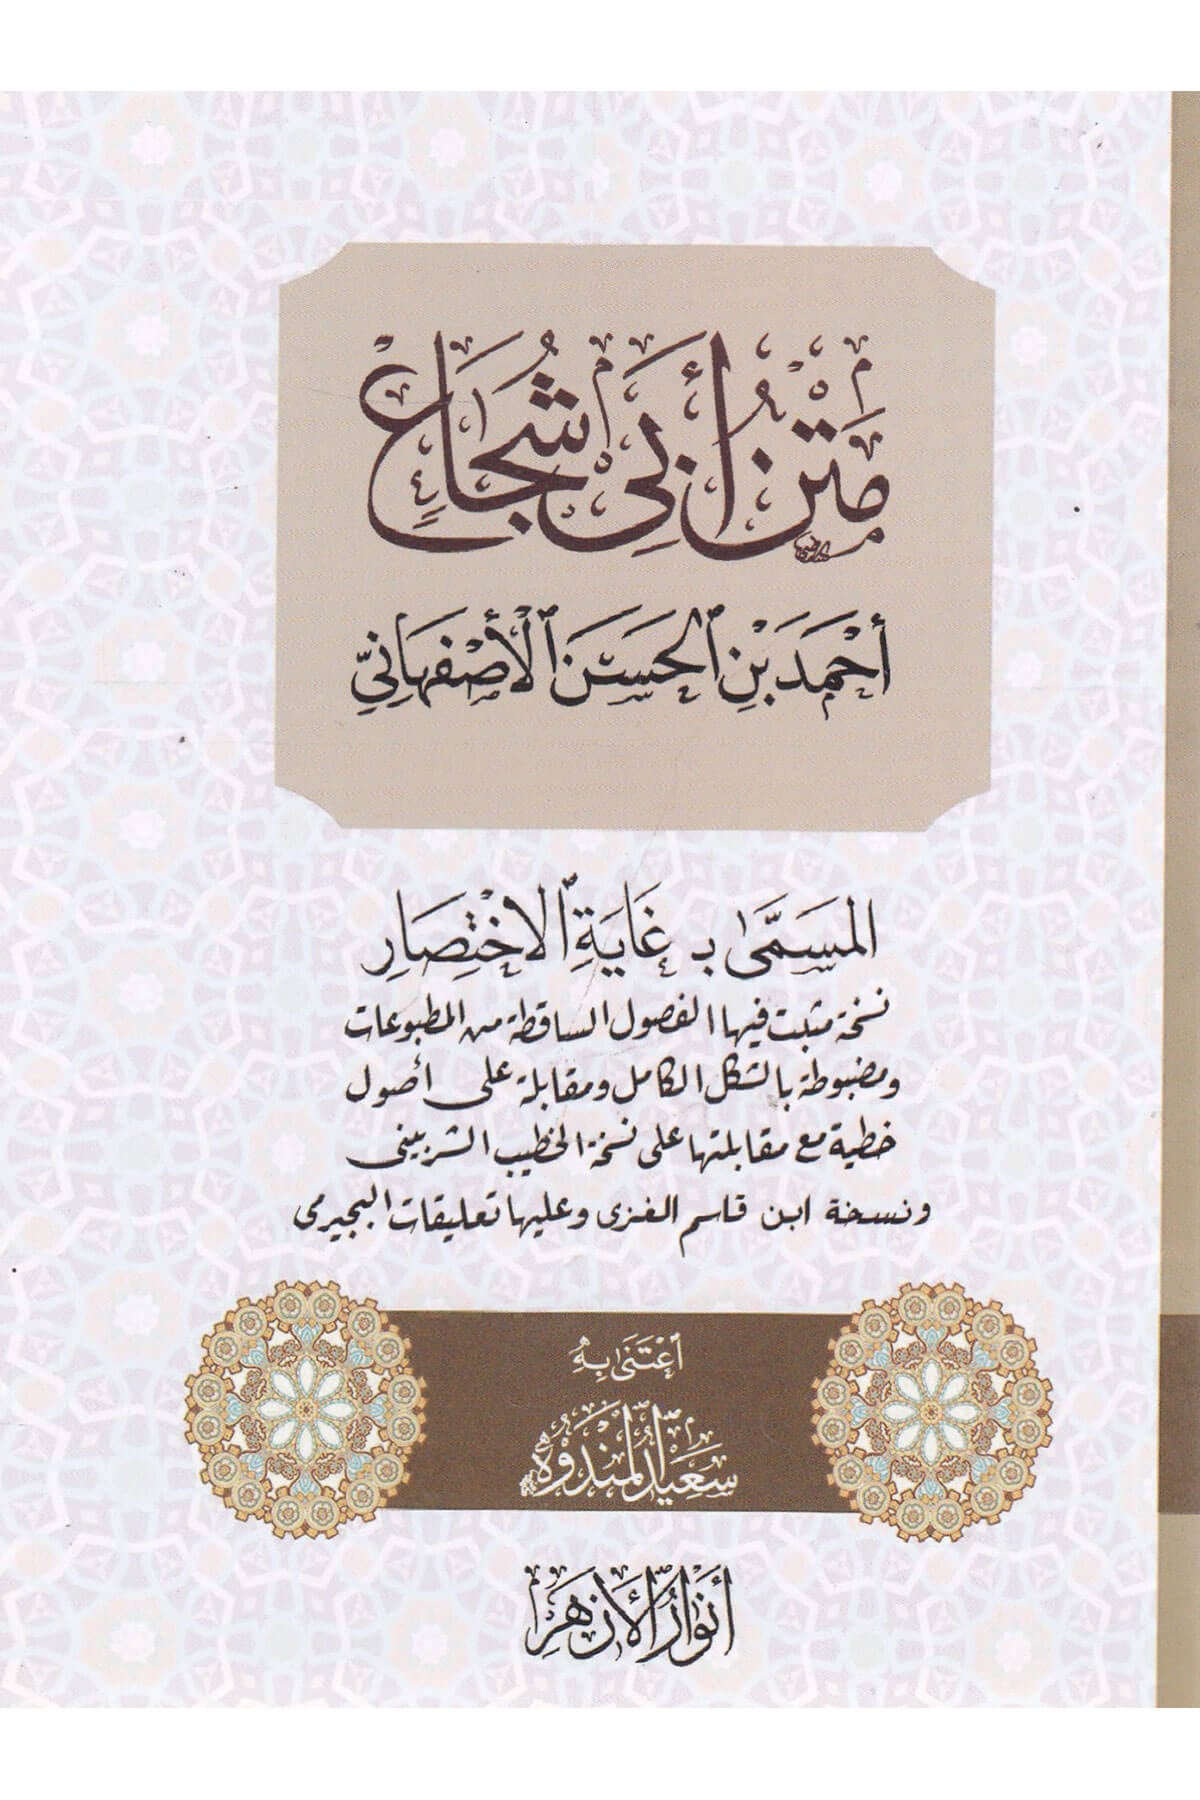 مَتْنُ أَبِي شُجَاعٍ
أَحْمَدَ بْنِ ٱلْحَسَنِ ٱلْأَصْفَهَانِيِّ
المسَمَّىٰ بـ غَايَةِ ٱلِاخْتِصَارِ
نسخة مثبت فيها الفصول الساقطة من المطبوعات
ومضبوطة بالشكل الكامل ومقابلة على أصول
خطية مع مقابلتها على نسخة الخطيب الشربيني
ونسخة ابن قاسم الغزي وعليها تعليقات البجيرمي
اعْتَنَىٰ بِهِ
سَعِيدُ الْمَنْدَوْهُ
أَنْوَارُ الْأَزْهَرِ